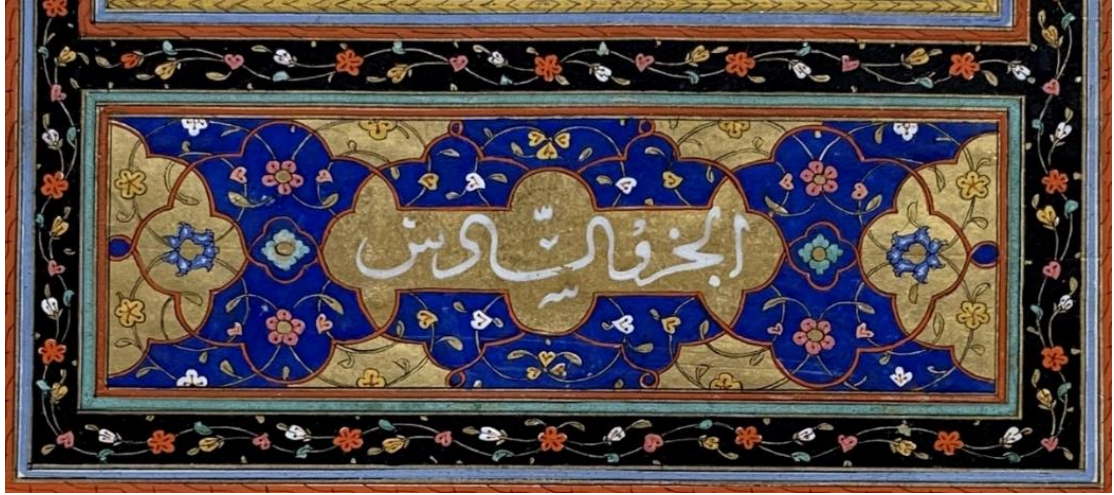 الجزؤ السّادس